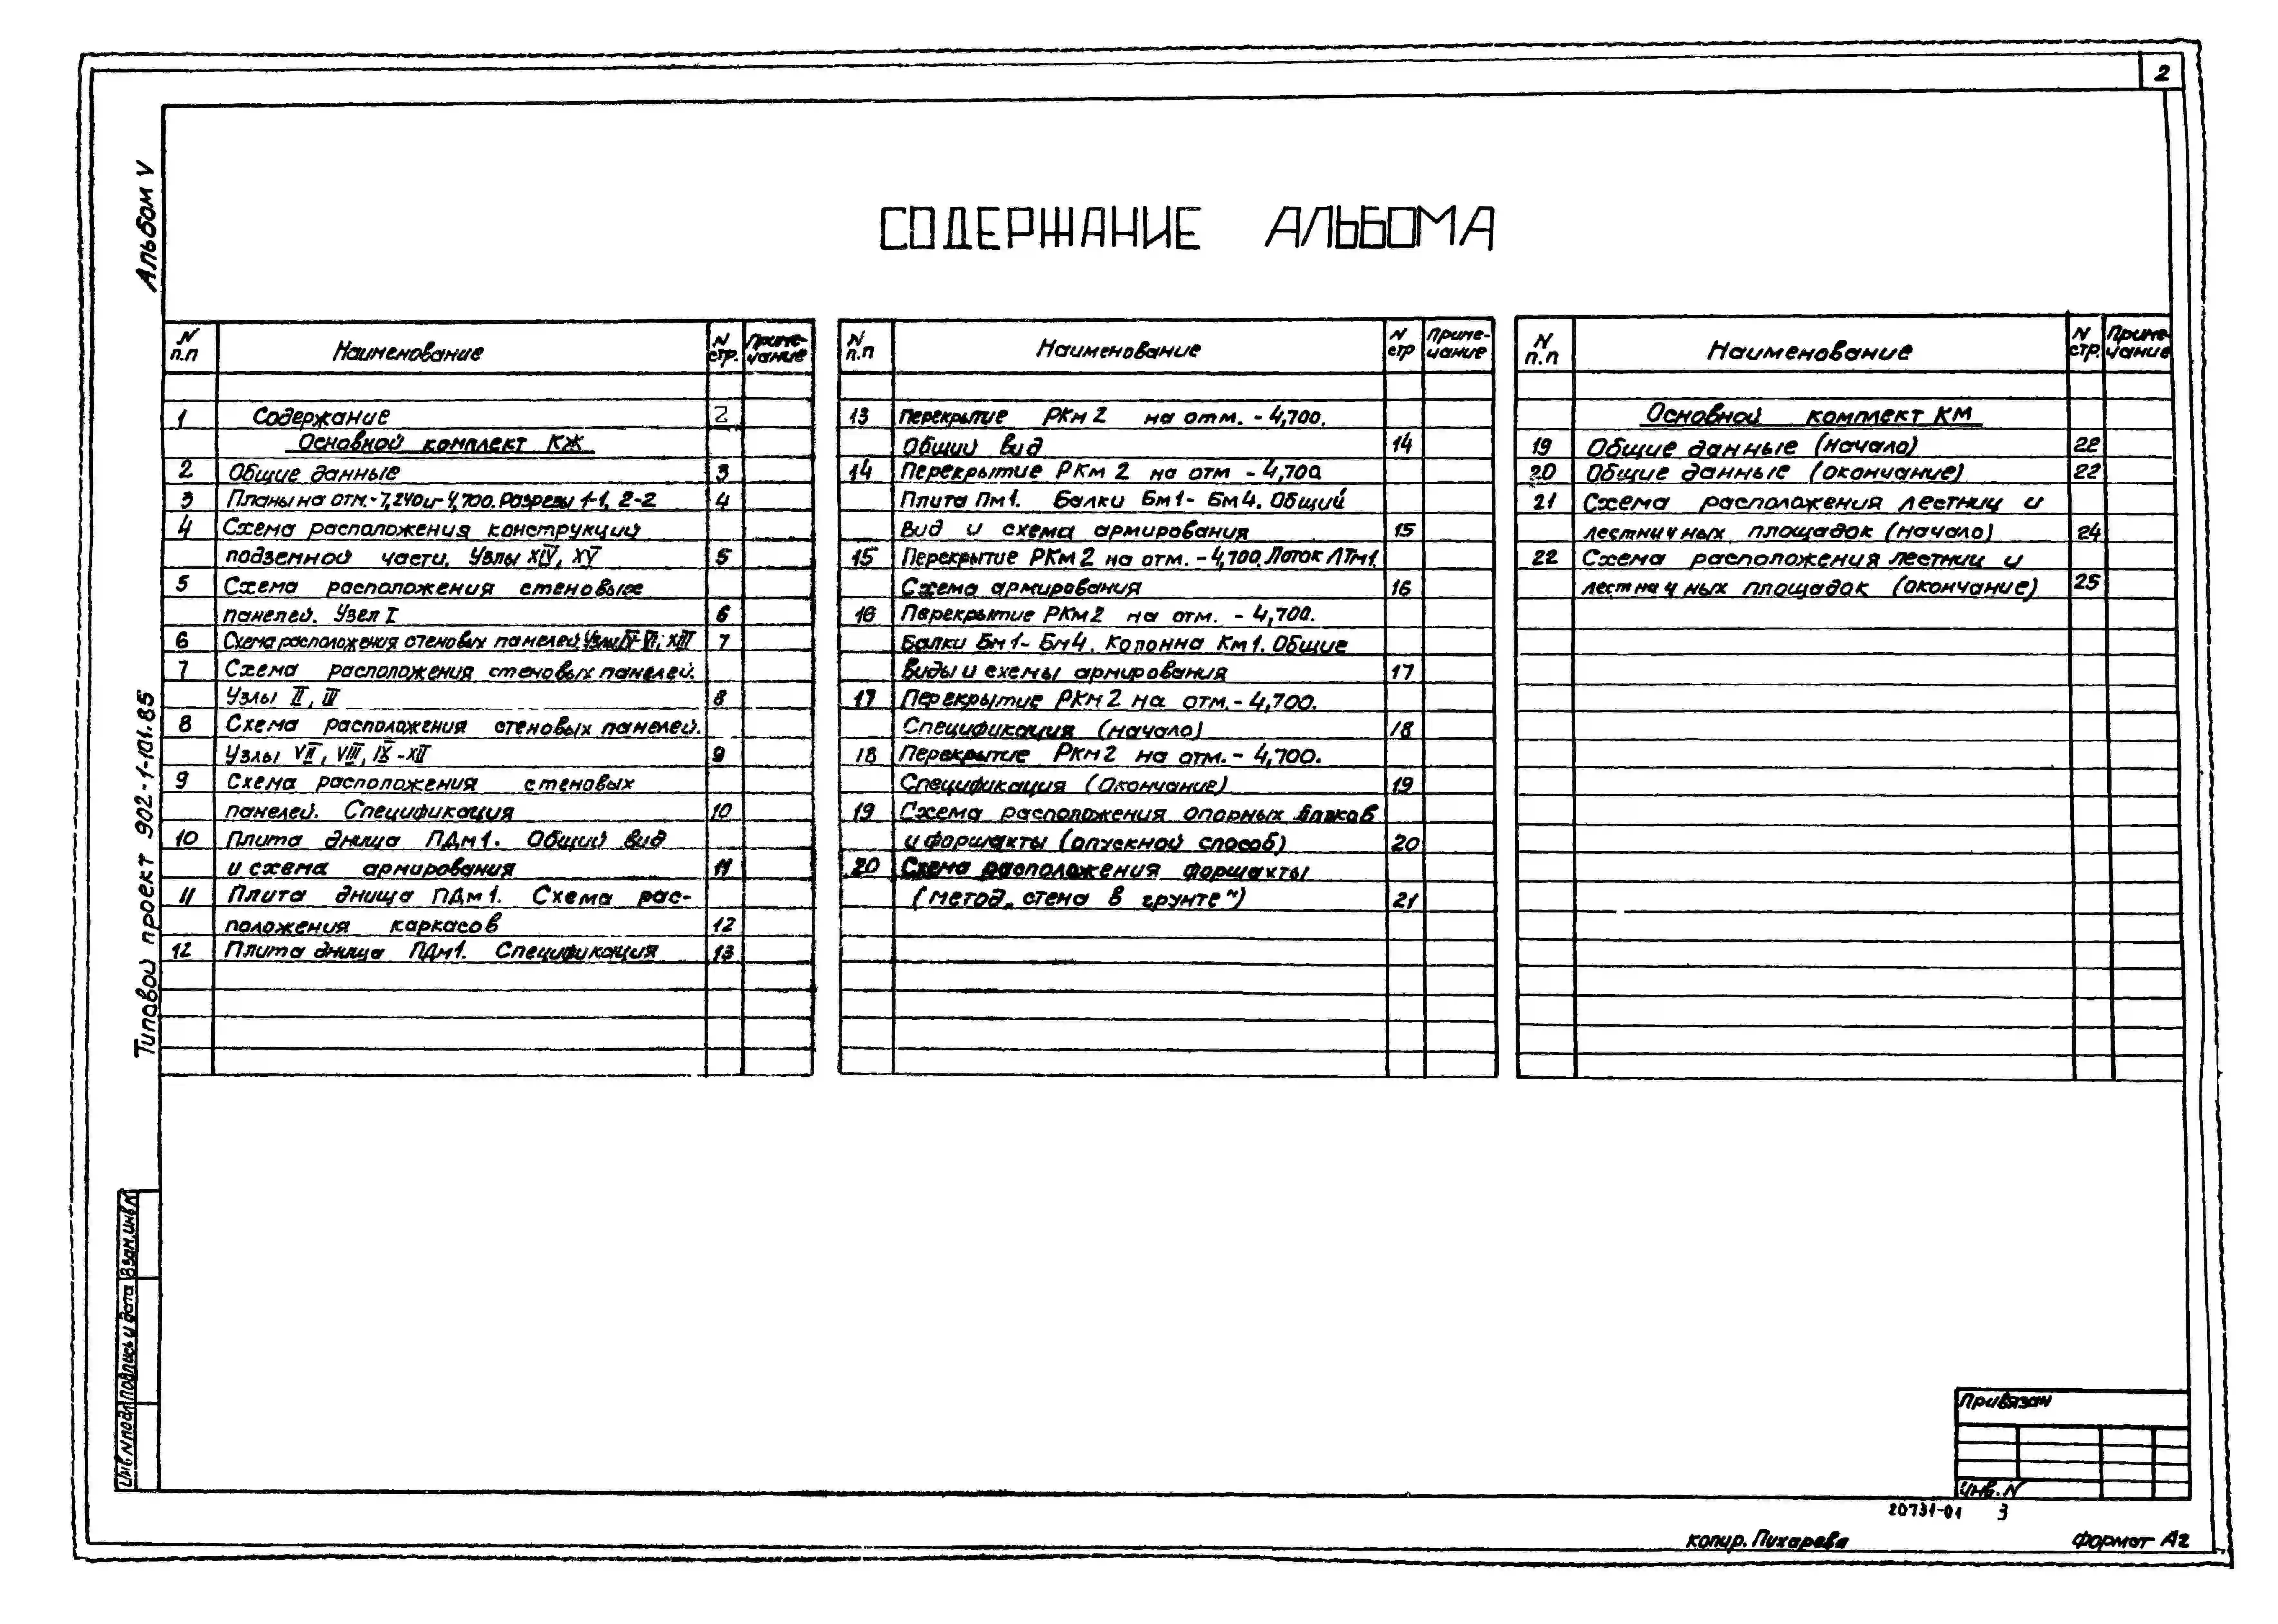 2
Альбом V
СОДЕРЖАНИЕ АЛЬБОМА
N п.п Наименование N стр. Приме-чание
1 Содержание 2
Основной комплект КЖ
2 Общие данные 3
3 Планы на отм.-7,240 и -4,700. Разрезы 1-1, 2-2 4
4 Схема расположения конструкций
подземной части. Узлы XIV, XV 5
5 Схема расположения стеновых
панелей. Узел I 6
6 Схема расположения стеновых панелей. Узлы IV-VI; XIII 7
7 Схема расположения стеновых панелей.
Узлы II, III 8
8 Схема расположения стеновых панелей.
Узлы VII, VIII, IX-XII 9
9 Схема расположения стеновых
панелей. Спецификация 10
10 Плита днища ПДм1. Общий вид
и схема армирования 11
11 Плита днища ПДм1. Схема рас-
положения каркасов 12
12 Плита днища ПДм1. Спецификация 13
N п.п Наименование N стр Приме-чание
13 Перекрытие РКм2 на отм. -4,700.
Общий вид 14
14 Перекрытие РКм2 на отм -4,700
Плита Пм1. Балки Бм1-Бм4. Общий
вид и схема армирования 15
15 Перекрытие РКм2 на отм. -4,700. Лоток ЛТм1.
Схема армирования 16
16 Перекрытие РКм2 на отм. -4,700.
Балки Бм1-Бм4. Колонна Км1. Общие
виды и схемы армирования 17
17 Перекрытие РКм2 на отм.-4,700.
Спецификация (начало) 18
18 Перекрытие РКм2 на отм.-4,700.
Спецификация (Окончание) 19
19 Схема расположения опорных блоков
и форшахты (опускной способ) 20
20 Схема расположения форшахты
(метод „стена в грунте") 21
N п.п Наименование N стр. Приме-чание
Основной комплект КМ
19 Общие данные (начало) 22
20 Общие данные (окончание) 22
21 Схема расположения лестниц и
лестничных площадок (начало) 24
22 Схема расположения лестниц и
лестничных площадок (окончание) 25
Типовой проект 902-1-101.85
Инв.N подл Подпись и дата Взам.инв.N
Привязан
Инв.N
20731-01 3
копир. Пихарева
Формат А2